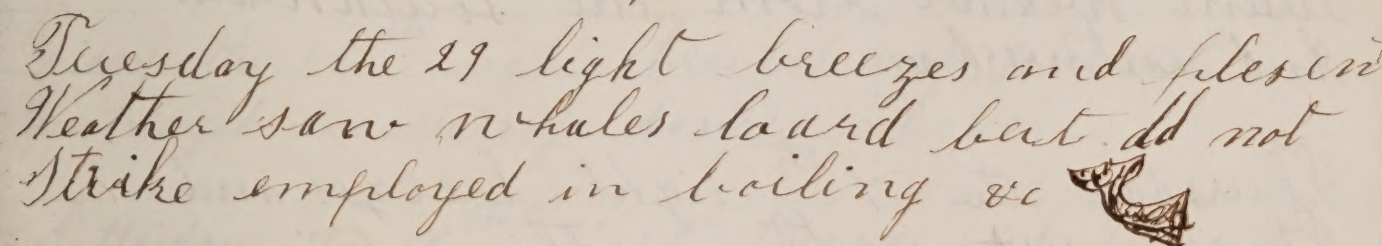 Tuesday the 29 light breezes and plesent
Weather saw whales loard but dd not
Strike employed in boiling &c